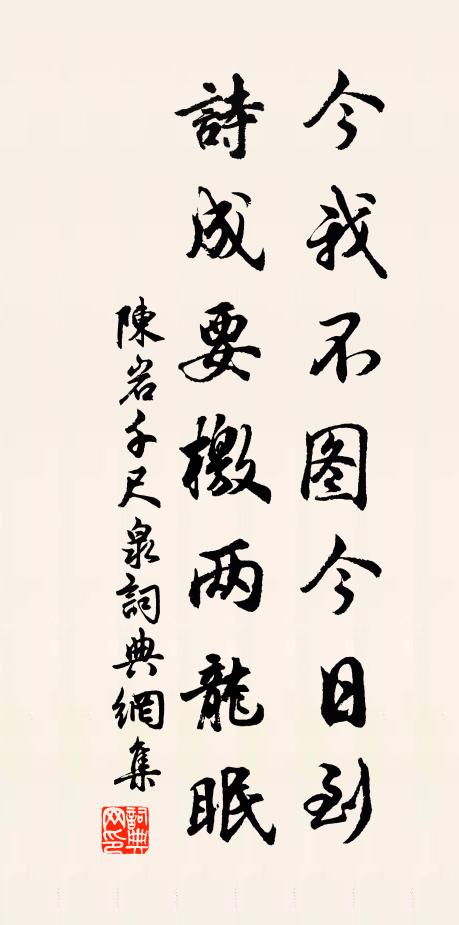 今我不图今日到
詩成要檄两龍眠
陳岩千尺泉詞典網集
詞典网印